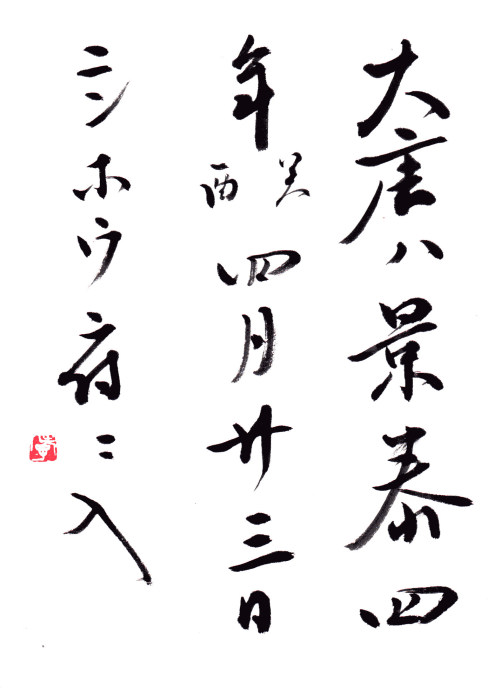 大唐ハ景泰四
年癸酉四月廿三日
ニンホウ府ニ入